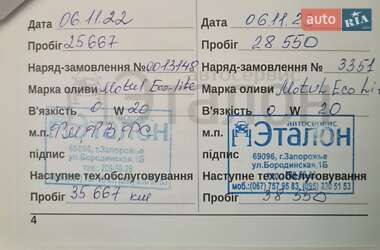 Дата 06.11.22
Пробіг 25667
Наряд-замовлення №0013148
Марка оливи Motul Eco-lite
В'язкість 0 W 20
м.п.
підпис
69096, г.Запорожье
ул.Бородинская,1Б
Наступне тех.обслуговування
Пробіг 35 667 км
4
Дата 06.11.2
Пробіг 28 550
Наряд-замовлення № 3351
Марка оливи Motul Eco Li
В'язкість 0 W 20
м.п.
автосервис
Эталон
підпис
69096, г.Запорожье
ул.Бородинская,1Б
Наступне тех.обслуговування
моб.:(067) 757 95 83, (095)
Пробіг 38 550
AUTO.RIA